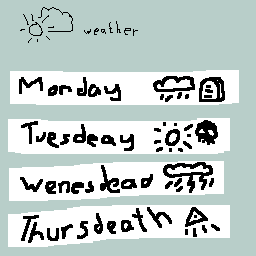 weather
Monday
Tuesdeay
Wenesdead
Thursdeath